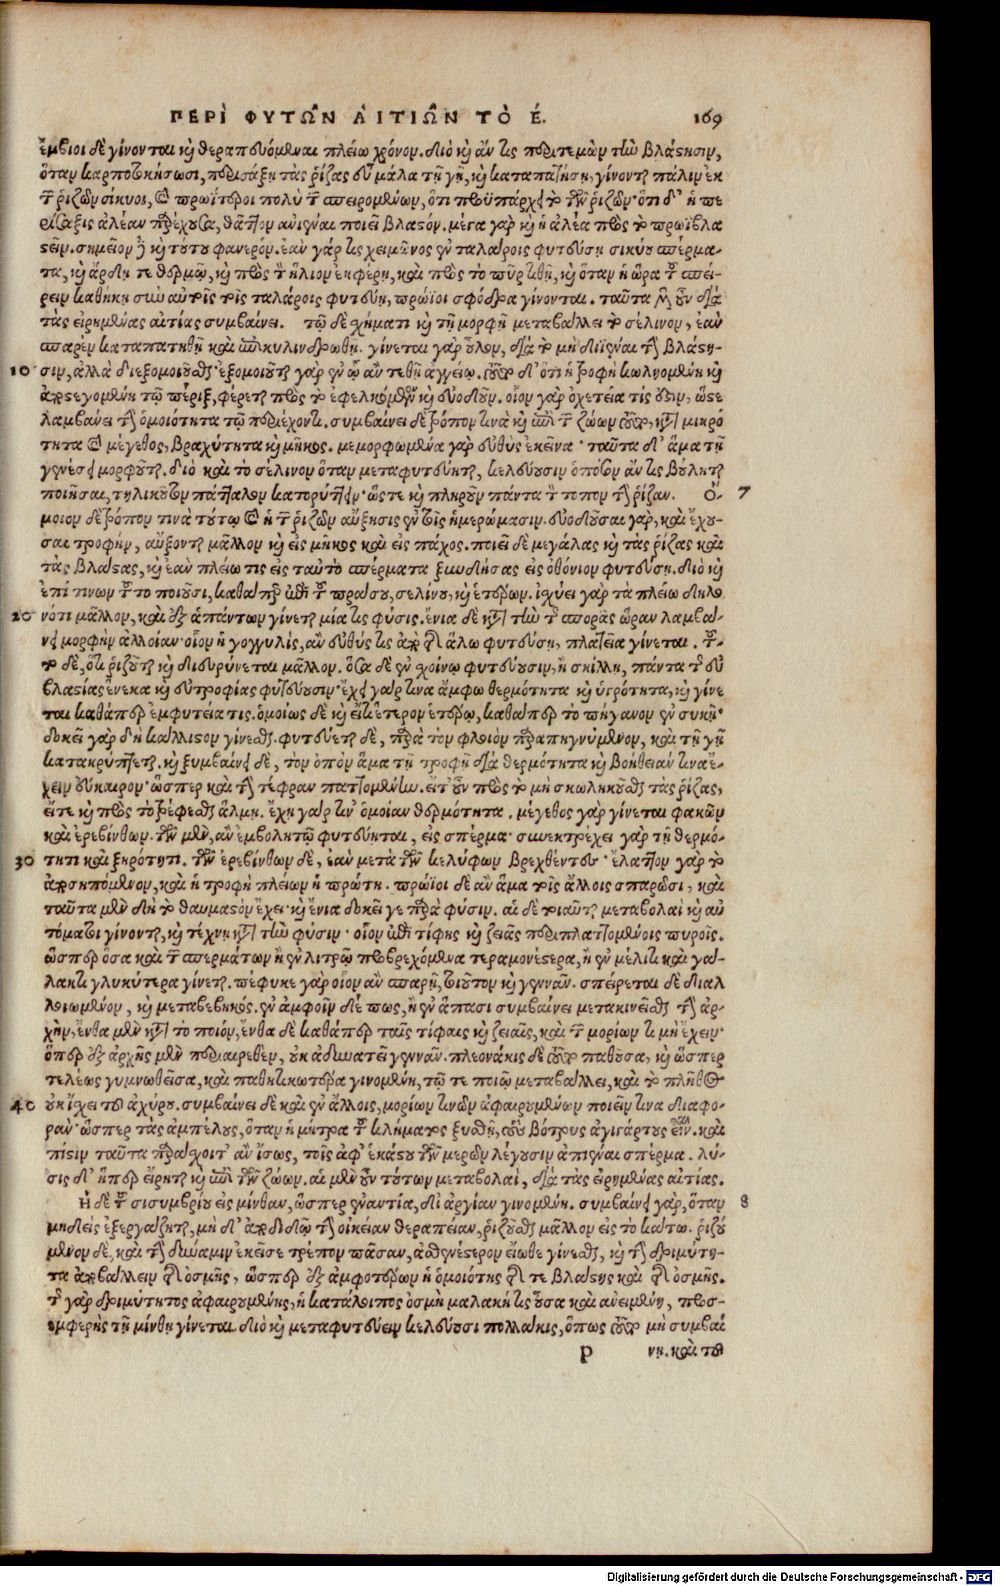 ΠΕΡῚ ΦΥΤΩ͂Ν ΑἸΤΙΩ͂Ν ΤῸ Έ. 169
ἔμβιοι δὲ γίνονται καὶ θεραπευόμεναι πλείω χρόνον. διὸ καὶ ἄν τις περιτεμὼν τὴν βλάστησιν,
ὅταν καρποτοκήσωσι, περισάξῃ τὰς ῥίζας εὖ μάλα τῇ γῇ, καὶ καταπατήσῃ, γίνονται πάλιν ἐκ
τῶν ῥιζῶν σίκυοι, καὶ πρωΐτεροι πολὺ τῶν σπειρομένων, ὅτι προϋπάρχει τὸ τῶν ῥιζῶν· ὅτι δ' ἡ πε
ρίσαξις ἀλέαν παρέχουσα, θᾶττον ἀνιέναι ποιεῖ βλαστόν. μέγα γὰρ καὶ ἡ ἀλέα πρὸς τὸ πρωϊβλα
στεῖν. σημεῖον δὲ καὶ τούτου φανερόν. ἐὰν γάρ τις χειμῶνος ἐν ταλάροις φυτεύσῃ σικύου σπέρμα-
τα, καὶ ἄρδῃ τε θερμῷ, καὶ πρὸς τὸν ἥλιον ἐκφέρῃ, καὶ πρὸς τὸ πῦρ τιθῇ, καὶ ὅταν ἡ ὥρα τοῦ σπεί-
ρειν καθήκῃ σὺν αὐτοῖς τοῖς ταλάροις φυτεύῃ, πρώϊοι σφόδρα γίνονται. ταῦτα μὲν οὖν διὰ
τὰς εἰρημένας αἰτίας συμβαίνει. τῷ δὲ σχήματι καὶ τῇ μορφῇ μεταβάλλει τὸ σέλινον, ἐὰν
σπαρὲν καταπατηθῇ καὶ ἐπικυλινδρωθῇ. γίνεται γὰρ οὖλον, διὰ τὸ μὴ διϊέναι τὴν βλάστη-
10 σιν, ἀλλὰ διεξομοιοῦσθαι. ἐξομοιοῦται γὰρ ἐν ᾧ ἂν τεθῇ ἀγγείῳ. τοῦτο δ' ὅτι ἡ τροφὴ κωλυομένη καὶ
ἀποστεγομένη τῷ πέριξ, φέρεται πρὸς τὸ ἐφελκόμενον καὶ εὐοδοῦν. οἷον γὰρ ὀχετεία τίς ἐστιν, ὥστε
λαμβάνει τὴν ὁμοιότητα τῷ περιέχοντι. συμβαίνει δὲ τρόπον τινὰ καὶ ἐπὶ τῶν ζώων τοῦτο, κατὰ μικρό
τητα καὶ μέγεθος, βραχύτητα καὶ μῆκος. μεμορφωμένα γὰρ εὐθὺς ἐκεῖνα· ταῦτα δ' ἅμα τῇ
γενέσει μορφοῦται. διὸ καὶ τὸ σέλινον ὅταν μεταφυτεύηται, κελεύουσιν ὁπόσον ἄν τις βούληται
ποιῆσαι, τηλικοῦτον πάτταλον κατορύττειν· ὥστε καὶ πληροῦν πάντα τὸν τόπον τὴν ῥίζαν. Ὅ- 7
μοιον δὲ τρόπον τινὰ τούτῳ καὶ ἡ τῶν ῥιζῶν αὔξησις ἐν τοῖς ἡμερώμασιν. εὐοδοῦσαι γὰρ, καὶ ἔχου-
σαι τροφὴν, αὔξονται μᾶλλον καὶ εἰς μῆκος καὶ εἰς πάχος. ποιεῖ δὲ μεγάλας καὶ τὰς ῥίζας καὶ
τὰς βλάστας, καὶ ἐὰν πλείω τις εἰς ταὐτὸ σπέρματα ξυνδήσας εἰς ὀθόνιον φυτεύσῃ. διὸ καὶ
ἐπί τινων τοῦτο ποιοῦσι, καθάπερ ἐπὶ τοῦ πράσου, σελίνου, καὶ ἑτέρων. ἰσχύει γὰρ τὰ πλείω δηλο
20 νότι μᾶλλον, καὶ ἐξ ἁπάντων γίνεται μία τις φύσις. ἔνια δὲ κατὰ τὴν τῆς σπορᾶς ὥραν λαμβά-
νει μορφὴν ἀλλοίαν· οἷον ἡ γογγυλίς, ἂν εὐθύς τις ἀπὸ τῆς ἅλω φυτεύσῃ, πλατεῖα γίνεται. τοῦ-
το δὲ, ὅτι ῥιζοῦται καὶ διευρύνεται μᾶλλον. ὅσα δὲ ἐν σχοίνῳ φυτεύουσιν, ἢ σκίλλῃ, πάντα τῆς εὐ
βλαστίας ἕνεκα καὶ εὐτροφίας φυτεύουσιν· ἔχει γάρ τινα ἄμφω θερμότητα καὶ ὑγρότητα, καὶ γίνε
ται καθάπερ ἐμφυτεία τις. ὁμοίως δὲ καὶ εἴ τι ἕτερον ἑτέρῳ, καθάπερ τὸ πήγανον ἐν συκῇ·
δοκεῖ γὰρ δὴ κάλλιστον γίνεσθαι. φυτεύεται δὲ, παρὰ τὸν φλοιὸν παραπηγνύμενον, καὶ τῇ γῇ
κατακρύπτεται. καὶ ξυμβαίνει δὲ, τὸν ὀπὸν ἅμα τῇ τροφῇ διὰ θερμότητα καὶ βοήθειάν τινα ἔ-
χειν εὔκαιρον· ὥσπερ καὶ τὴν τέφραν πατtομένην. εἴτ' οὖν πρὸς τὸ μὴ σκωληκοῦσθαι τὰς ῥίζας,
εἴτε καὶ πρὸς τὸ τρέφεσθαι ἅλμῃ. ἔχῃ γάρ τιν' ὁμοίαν θερμότητα. μέγεθος γὰρ γίνεται φακῶν
καὶ ἐρεβίνθων. τῶν μὲν, ἂν ἐμβολητῷ φυτεύηται, εἰς σπέρμα· συνεκτρέχει γὰρ τῇ θερμό-
30 τητι καὶ ξηρότητι. τῶν ἐρεβίνθων δὲ, ἐὰν μετὰ τῶν κελύφων βρεχθέντες· ἔλαττον γὰρ τὸ
ἀποσηπόμενον, καὶ ἡ τροφὴ πλείων ἡ πρώτη. πρώϊοι δὲ ἂν ἅμα τοῖς ἄλλοις σπαρῶσι, καὶ
ταῦτα μὲν δὴ τὸ θαυμαστὸν ἔχει· καὶ ἔνια δοκεῖ γε παρὰ φύσιν. αἱ δὲ τοιαῦται μεταβολαὶ καὶ αὐ
τόματοι γίνονται, καὶ τέχνῃ κατὰ τὴν φύσιν· οἷον ἐπὶ τίφης καὶ ζειᾶς περιπλαττομένοις πυροῖς.
ὥσπερ ὅσα καὶ τῶν σπερμάτων ἢ ἐν λίτρῳ προβρεχόμενα τεραμονέστερα, ἢ ἐν μέλιτι καὶ γά-
λακτι γλυκύτερα γίνεται. πέφυκε γὰρ οἷον ἂν σπαρῇ, τοιοῦτον καὶ γεννᾶν. σπείρεται δὲ διαλ
λοιωμένον, καὶ μεταβεβηκός. ἐν ἀμφοῖν δέ πως, ἢ ἐν ἅπασι συμβαίνει μετακινεῖσθαι τὴν ἀρ-
χὴν, ἔνθα μὲν κατὰ τὸ ποιὸν, ἔνθα δὲ καθάπερ ταῖς τίφαις καὶ ζειαῖς, καὶ τῶν μορίων τι μὴ ἔχειν·
ὅπερ ἐξ ἀρχῆς μὲν περιαιρεθὲν, οὐκ ἀδυνατεῖ γεννᾶν. πλεονάκις δὲ τοῦτο παθοῦσα, καὶ ὥσπερ
τελέως γυμνωθεῖσα, καὶ παθητικωτέρα γινομένη, τῷ τε ποιῷ μεταβάλλει, καὶ τὸ πλῆθος
40 οὐκ ἴσχει τοῦ ἀχύρου. συμβαίνει δὲ καὶ ἐν ἄλλοις, μορίων τινῶν ἀφαιρουμένων ποιεῖν τινα διαφο-
ράν· ὥσπερ τὰς ἀμπέλους, ὅταν ἡ μήτρα τοῦ κλήματος ξυσθῇ, τοὺς βότρυς ἀγιγάρτους εἶναι. καὶ
πίστιν ταῦτα παράσχοιτ' ἂν ἴσως, τοῖς ἀφ' ἑκάστου τῶν μερῶν λέγουσιν ἀπιέναι σπέρμα. λύ-
σις δ' ἥπερ εἴρηται καὶ ἐπὶ τῶν ζώων. αἱ μὲν οὖν τούτων μεταβολαὶ, διὰ τὰς εἰρημένας αἰτίας.
Ἡ δὲ τοῦ σισυμβρίου εἰς μίνθαν, ὥσπερ ἐναντία, δι' ἀργίαν γινομένη. συμβαίνει γὰρ, ὅταν 8
μηδεὶς ἐξεργάζηται, μὴ δ' ἀποδιδῷ τὴν οἰκείαν θεραπείαν, ῥιζοῦσθαι μᾶλλον εἰς τὸ κάτω. ῥιζού
μενον δὲ, καὶ τὴν δύναμιν ἐκεῖσε τρέπον πᾶσαν, ἀσθενέστερον εἴωθε γίνεσθαι, καὶ τὴν δριμύτη-
τα ἀποβάλλειν τῆς ὀσμῆς, ὥσπερ ἐξ ἀμφοτέρων ἡ ὁμοιότης τῆς τε βλάστης καὶ τῆς ὀσμῆς.
τῆς γὰρ δριμύτητος ἀφαιρουμένης, ἡ κατάλοιπος ὀσμὴ μαλακή τις οὖσα καὶ ἀνειμένη, προσ-
εμφερὴς τῇ μίνθῃ γίνεται. διὸ καὶ μεταφυτεύειν κελεύουσι πολλάκις, ὅπως τοῦτο μὴ συμβαί
P νῃ. καὶ τοῦ
Digitalisierung gefördert durch die Deutsche Forschungsgemeinschaft - DFG